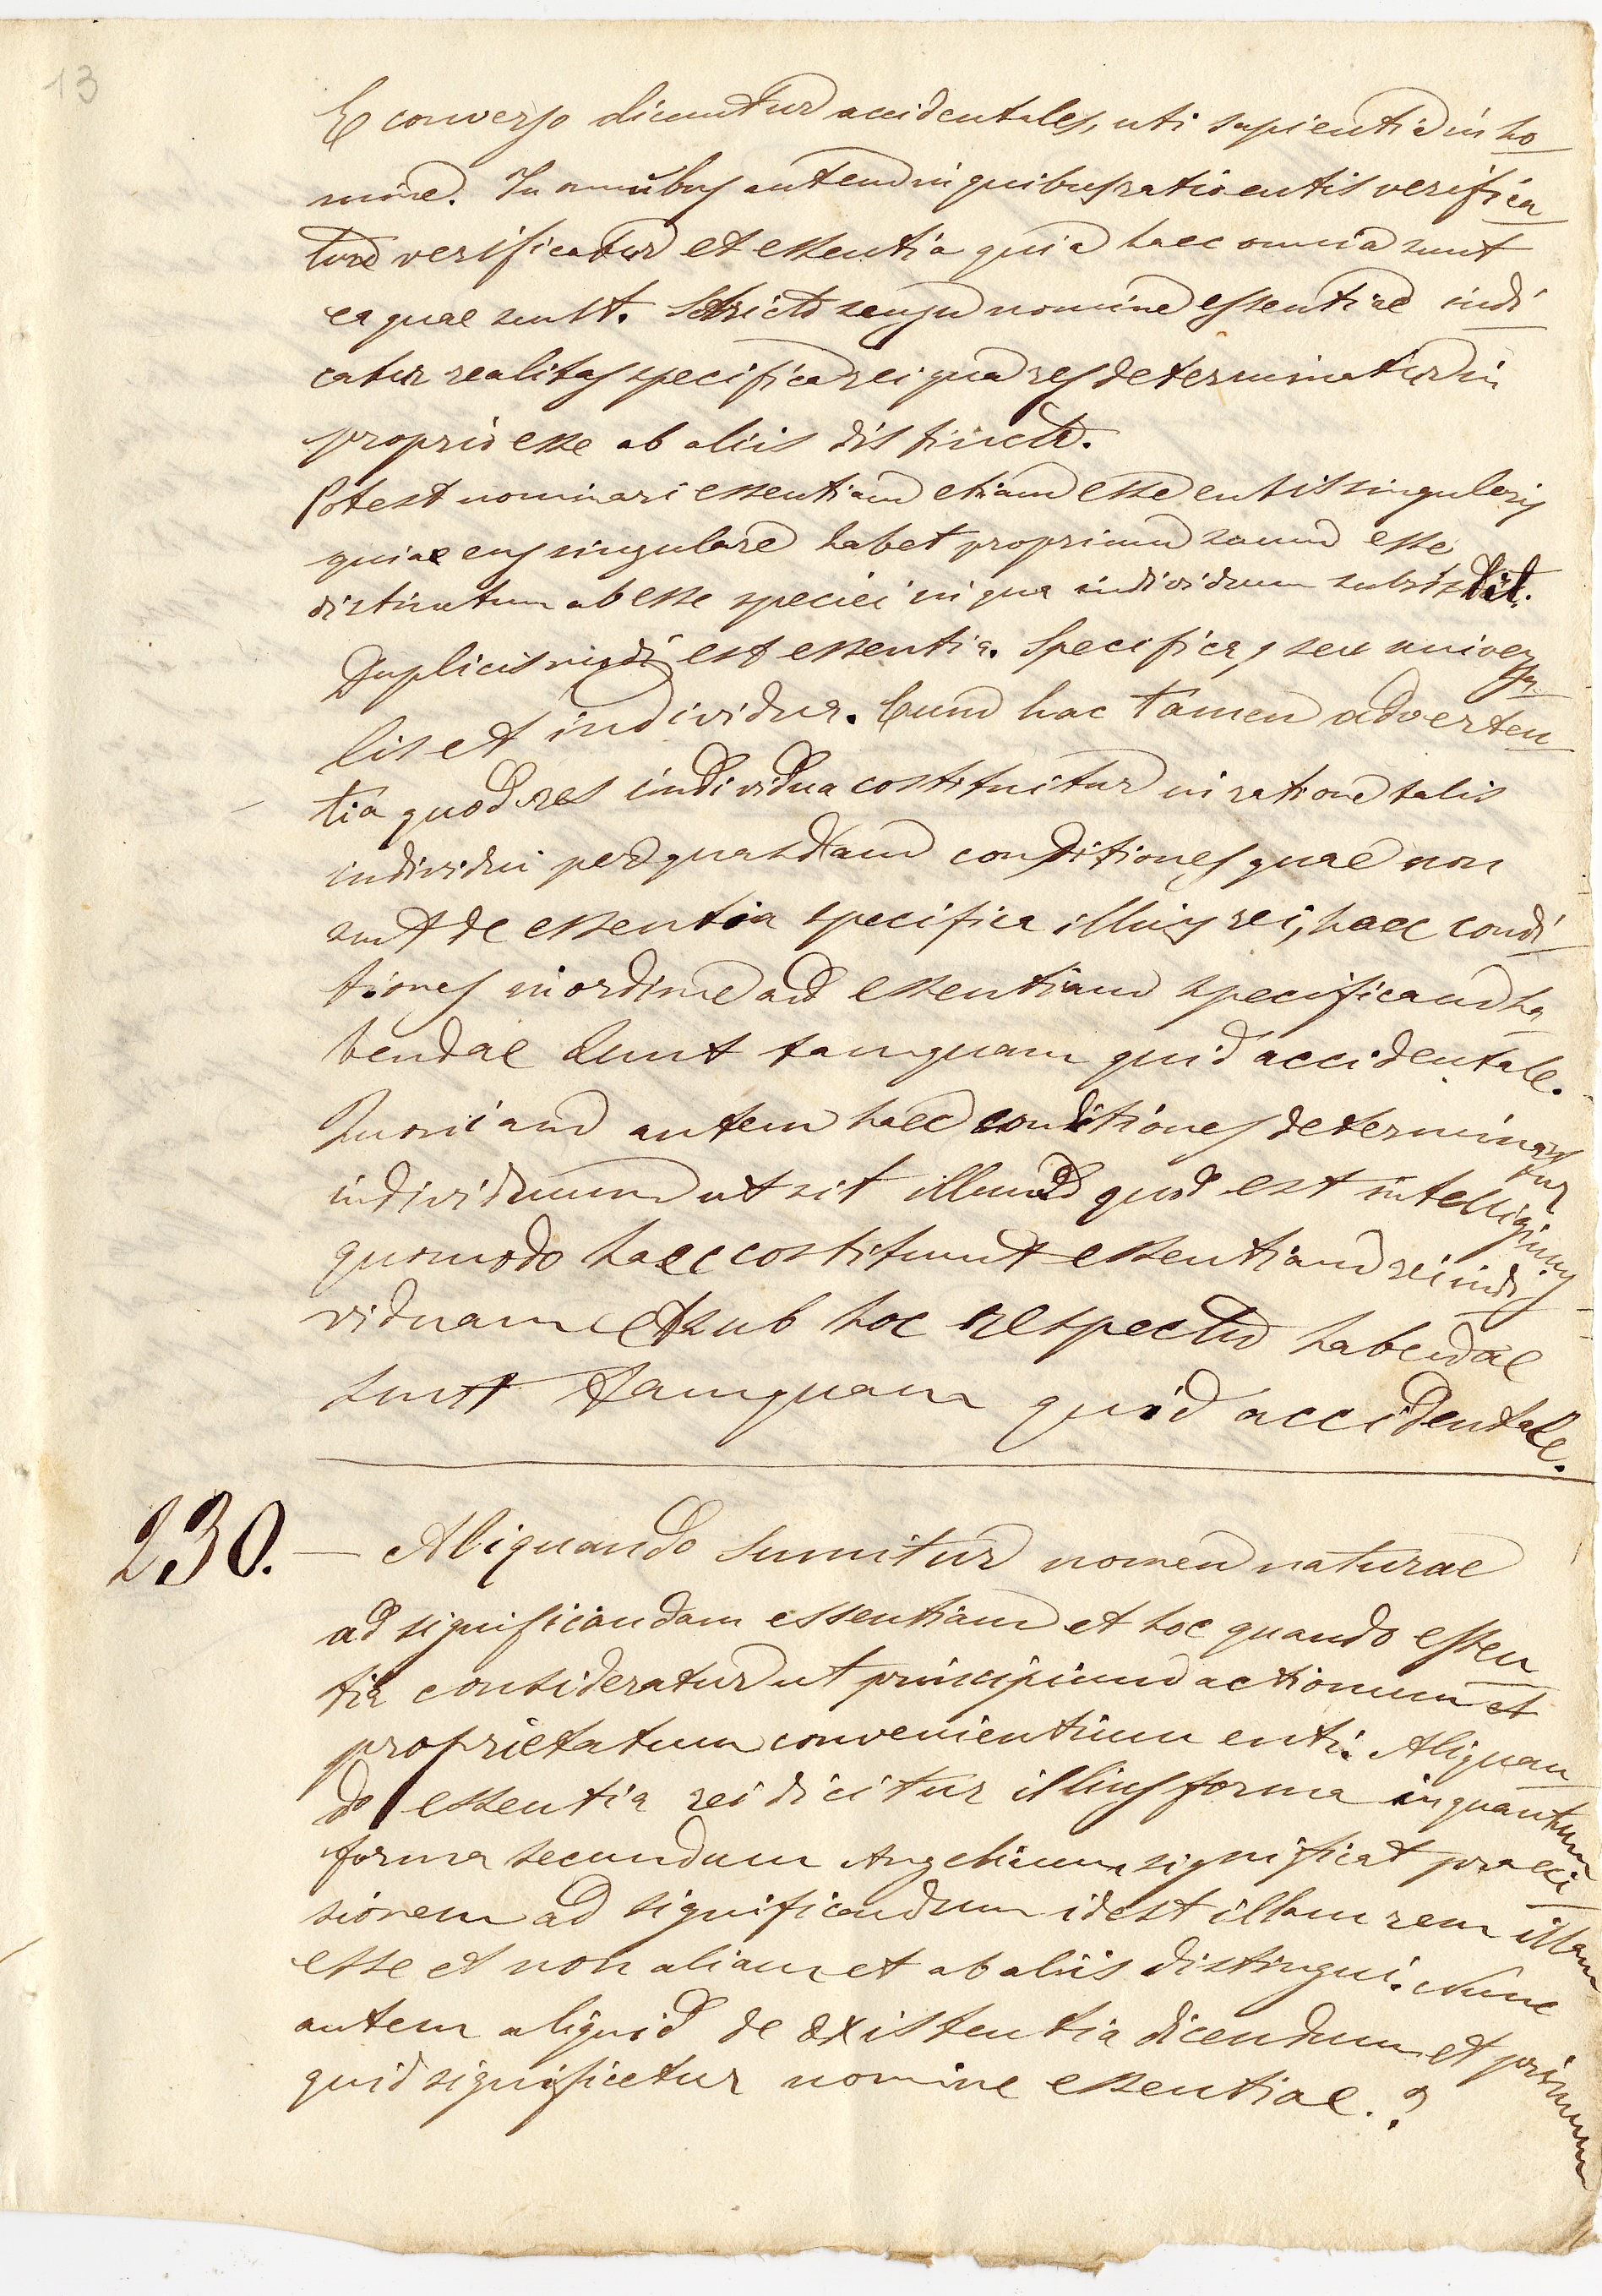 13
E converso dicuntur accidentales, uti sapientia in ho
mine. In omnibus autem in quibus ratio entis verifica
tur verificatur et essentia quia haec omnia sunt
ea quae sunt. Stricto sensu nomine essentiae indi
catur realitas specifica rei qua res determinatur in
proprio esse ab aliis distincto.
Potest nominari essentiam etiam esse entis singularis
quia ens singulare habet proprium suum esse
distinctum ab esse speciei in qua individuum subsistit.
Duplicis modi est essentia. Specifica, seu univer
sa
lis et individua. Cum hac tamen adverten
tia quod res individua costituitur in ratione talis
individui per quasdam conditiones quae non
sunt de essentia specifica illius rei, haec condi
tiones in ordine ad essentiam specificam ha
bendae sunt tamquam quid accidentale.
Quoniam autem haec conditiones determinant
ur
individuum ut sit illud quod est intelligimus
quomodo haec costituunt essentiam rei indi
viduam et sub hoc respectu habendae
sunt tamquam quid accidentale.
230. — Aliquando sumitur nomen naturae
ad significandam essentiam et hoc quando essen
tia consideratur ut principium actionum et
proprietatum convenientium enti. Aliquan
do essentia rei dicitur illius forma in quantum
forma secundum Angelicum significat praeci
sionem ad significandum idest illam rem illam
esse et non aliam et ab aliis distingui. Nunc
autem aliquid de existentia dicendum et primum
quid significetur nomine essentiae. ?